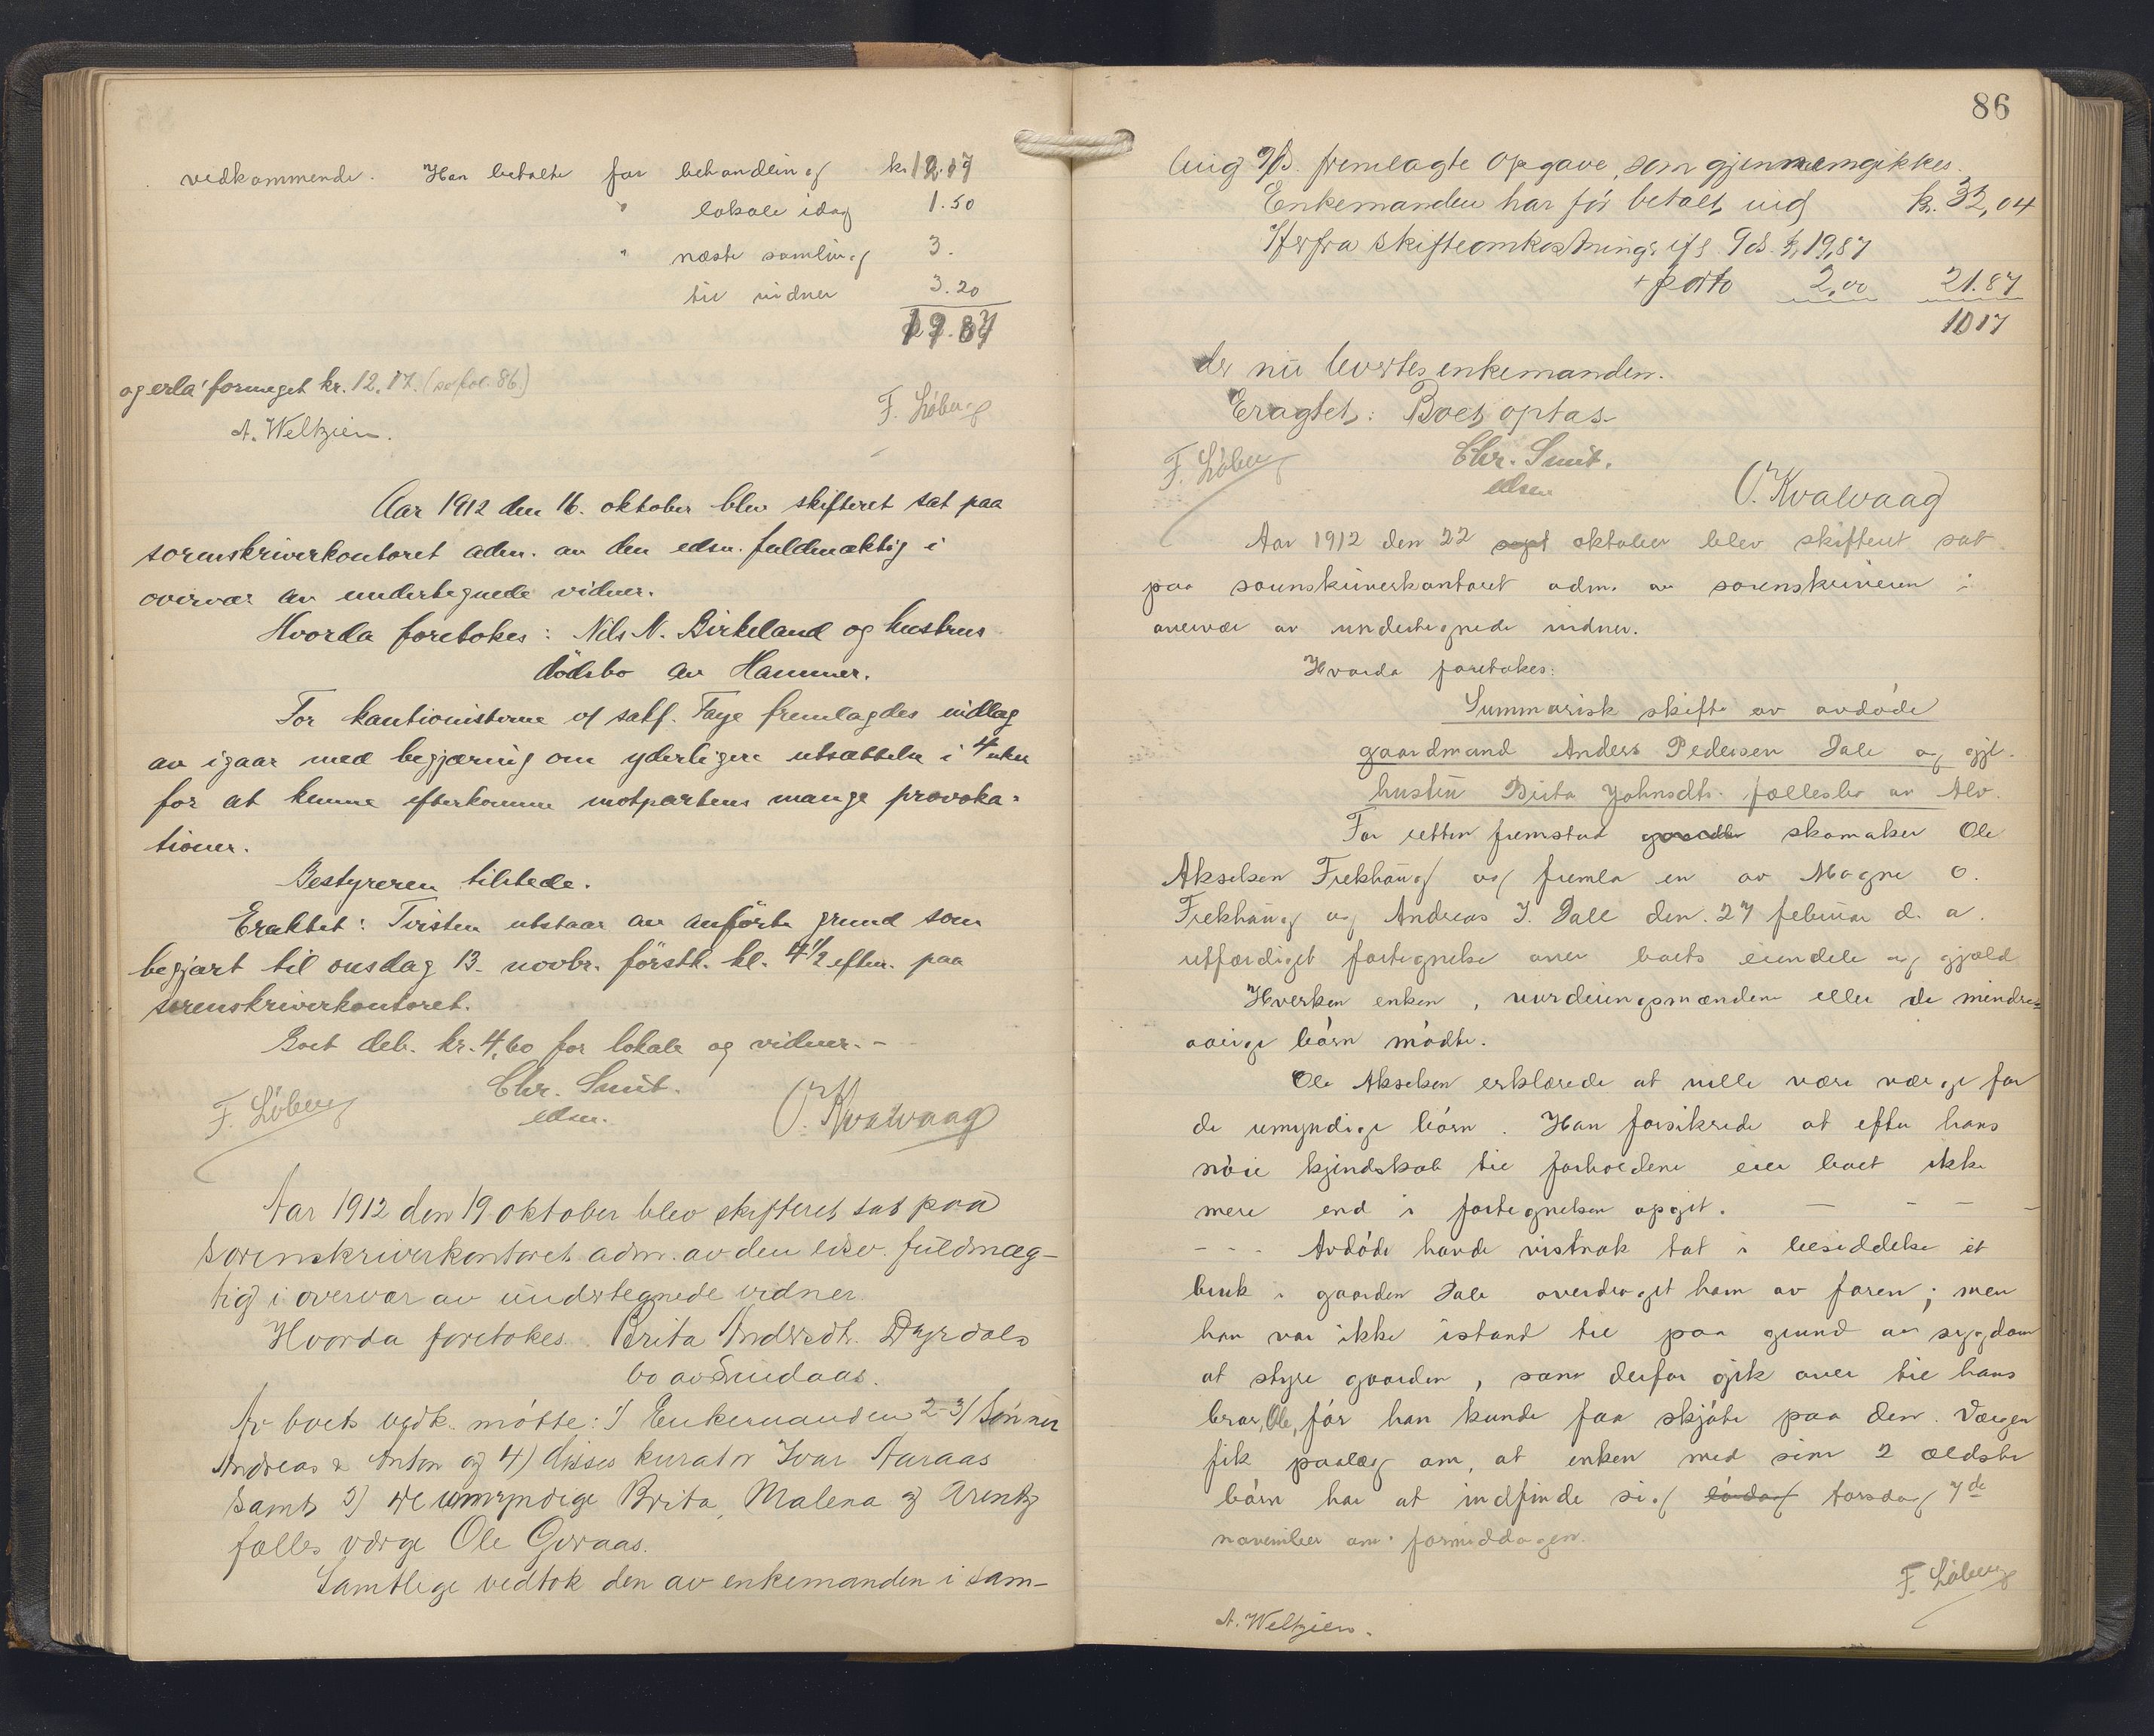 vedkommende. Han betalte for behandling kr. 12.17
" lokale idag 1.50
" næste samling 3.
til vidner 3.20
19.87
og erla' formeget kr. 12.17. (se fol. 86.)
F. Løberg
A. Weltzien.
Aar 1912 den 16. oktober blev skifteret sat paa
sorenskriverkontoret adm. av den edsv. fuldmæktig i
overvær av undertegnede vidner.
Hvorda foretokes: Nils N. Birkeland og hustrus
dödsbo av Hammer.
For kautionisterne v/ sakf. Faye fremlagdes indlæg
av igaar med begjæring om yderligere utsættelse i 4 uker
for at kunne efterkomme motpartens mange provoka=
tioner.
Bestyreren tilstede.
Eraktet: Tvisten utstaar av anförte grund som
begjært til onsdag 13. novbr. förstk. kl. 4½ efterm. paa
sorenskriverkontoret.
Boet deb. kr. 4,60 for lokale og vidner. –
F. Løberg Chr. Smit. O. Kvalvaag
edsv.
Aar 1912 den 19 oktober blev skifteret sat paa
sorenskriverkontoret adm. av den edsv. fuldmæg-
tig i overvær av undertegnede vidner
Hvorda foretokes Brita Andersdtr. Dyrdals
bo av
Av boets vedk. møtte: 1/ Enkemanden 2-3/ Sønner
Andreas & Anton og 4) disses kurator Ivar Aaraas
samt 5) de umyndige Brita, Malena og Arentz
fælles værge Ole
Samtlige vedtok den av enkemanden i sam-
86
fremlagte opgave, som gjennemgikkes.
Enkemanden har før betalt ind kr. 32,04
Herfra skifteomkostninger kr. 19,87
+ porto 2,00 21.87
10 17
der nu levertes enkemanden.
Eragtet: Boet optas
F. Løberg Chr. Smit. O. Kvalvaag
edsv.
Aar 1912 den 22 sept oktober blev skifteret sat
paa sorenskriverkontoret adm. av sorenskriveren i
overvær av undertegnede vidner.
Hvorda foretokes:
Summarisk skifte av avdøde
gaardmand Anders Pedersen Dale og gjl.
hustru Brita Johnsdtr. fællesbo av Alv.
For retten fremstod skomaker Ole
Akselsen Frekhaug og fremla en av Magne O.
Frekhaug og Andreas J. Dale den 27 februar d. a.
utfærdiget fortegnelse over boets eiendele og gjæld
Hverken enken, vurderingsmændene eller de mindre=
aarige børn mødte.
Ole Akselsen erklærede at ville være værge for
de umyndige børn. Han forsikrede at efter hans
nøie kjendskab til forholdene eier boet ikke
mere end i fortegnelsen opgit. — - — -
- - - Avdøde havde vistnok tat i besiddelse et
bruk i gaarden Dale overdraget ham av faren; men
han var ikke istand til paa grund av sygdom
at styre gaarden, som derfor gik over til hans
bror, Ole, før han kunde faa skjøte paa den. Værgen
fik paalæg om, at enken med sine 2 ældste
børn har at indfinde sig lørdag torsdag 7de
november om formiddagen.
F. Løberg
A. Weltzien.